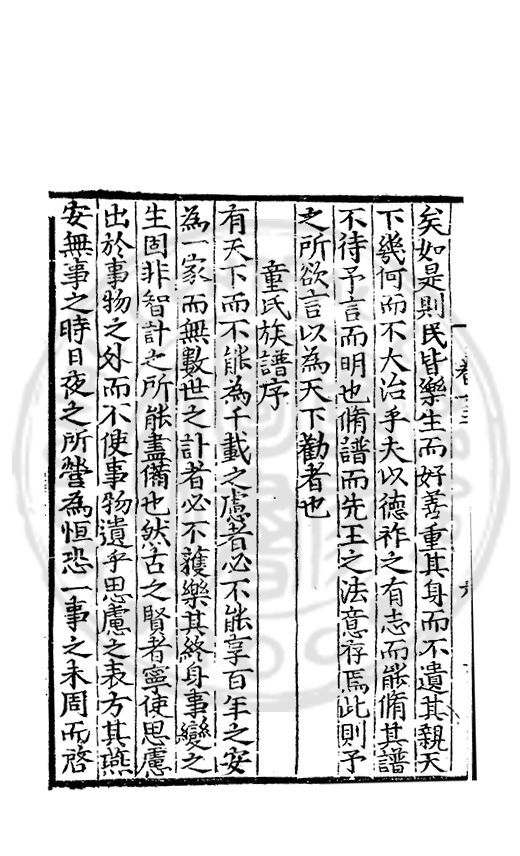 矣如是則民皆樂生而好善重其身而不遺其親天
下幾何而不大治乎夫以德祚之有志而能脩其譜
不待予言而明也脩譜而先王之法意存焉此則予
之所欲言以為天下勸者也
童氏族譜序
有天下而不能為千載之慮者必不能享百年之安
為一家而無數世之計者必不獲樂其終身事變之
生固非智計之所能盡備也然古之賢者寧使思慮
出於事物之外而不使事物遺乎思慮之表方其燕
安無事之時日夜之所營為恒恐一事之未周而啓